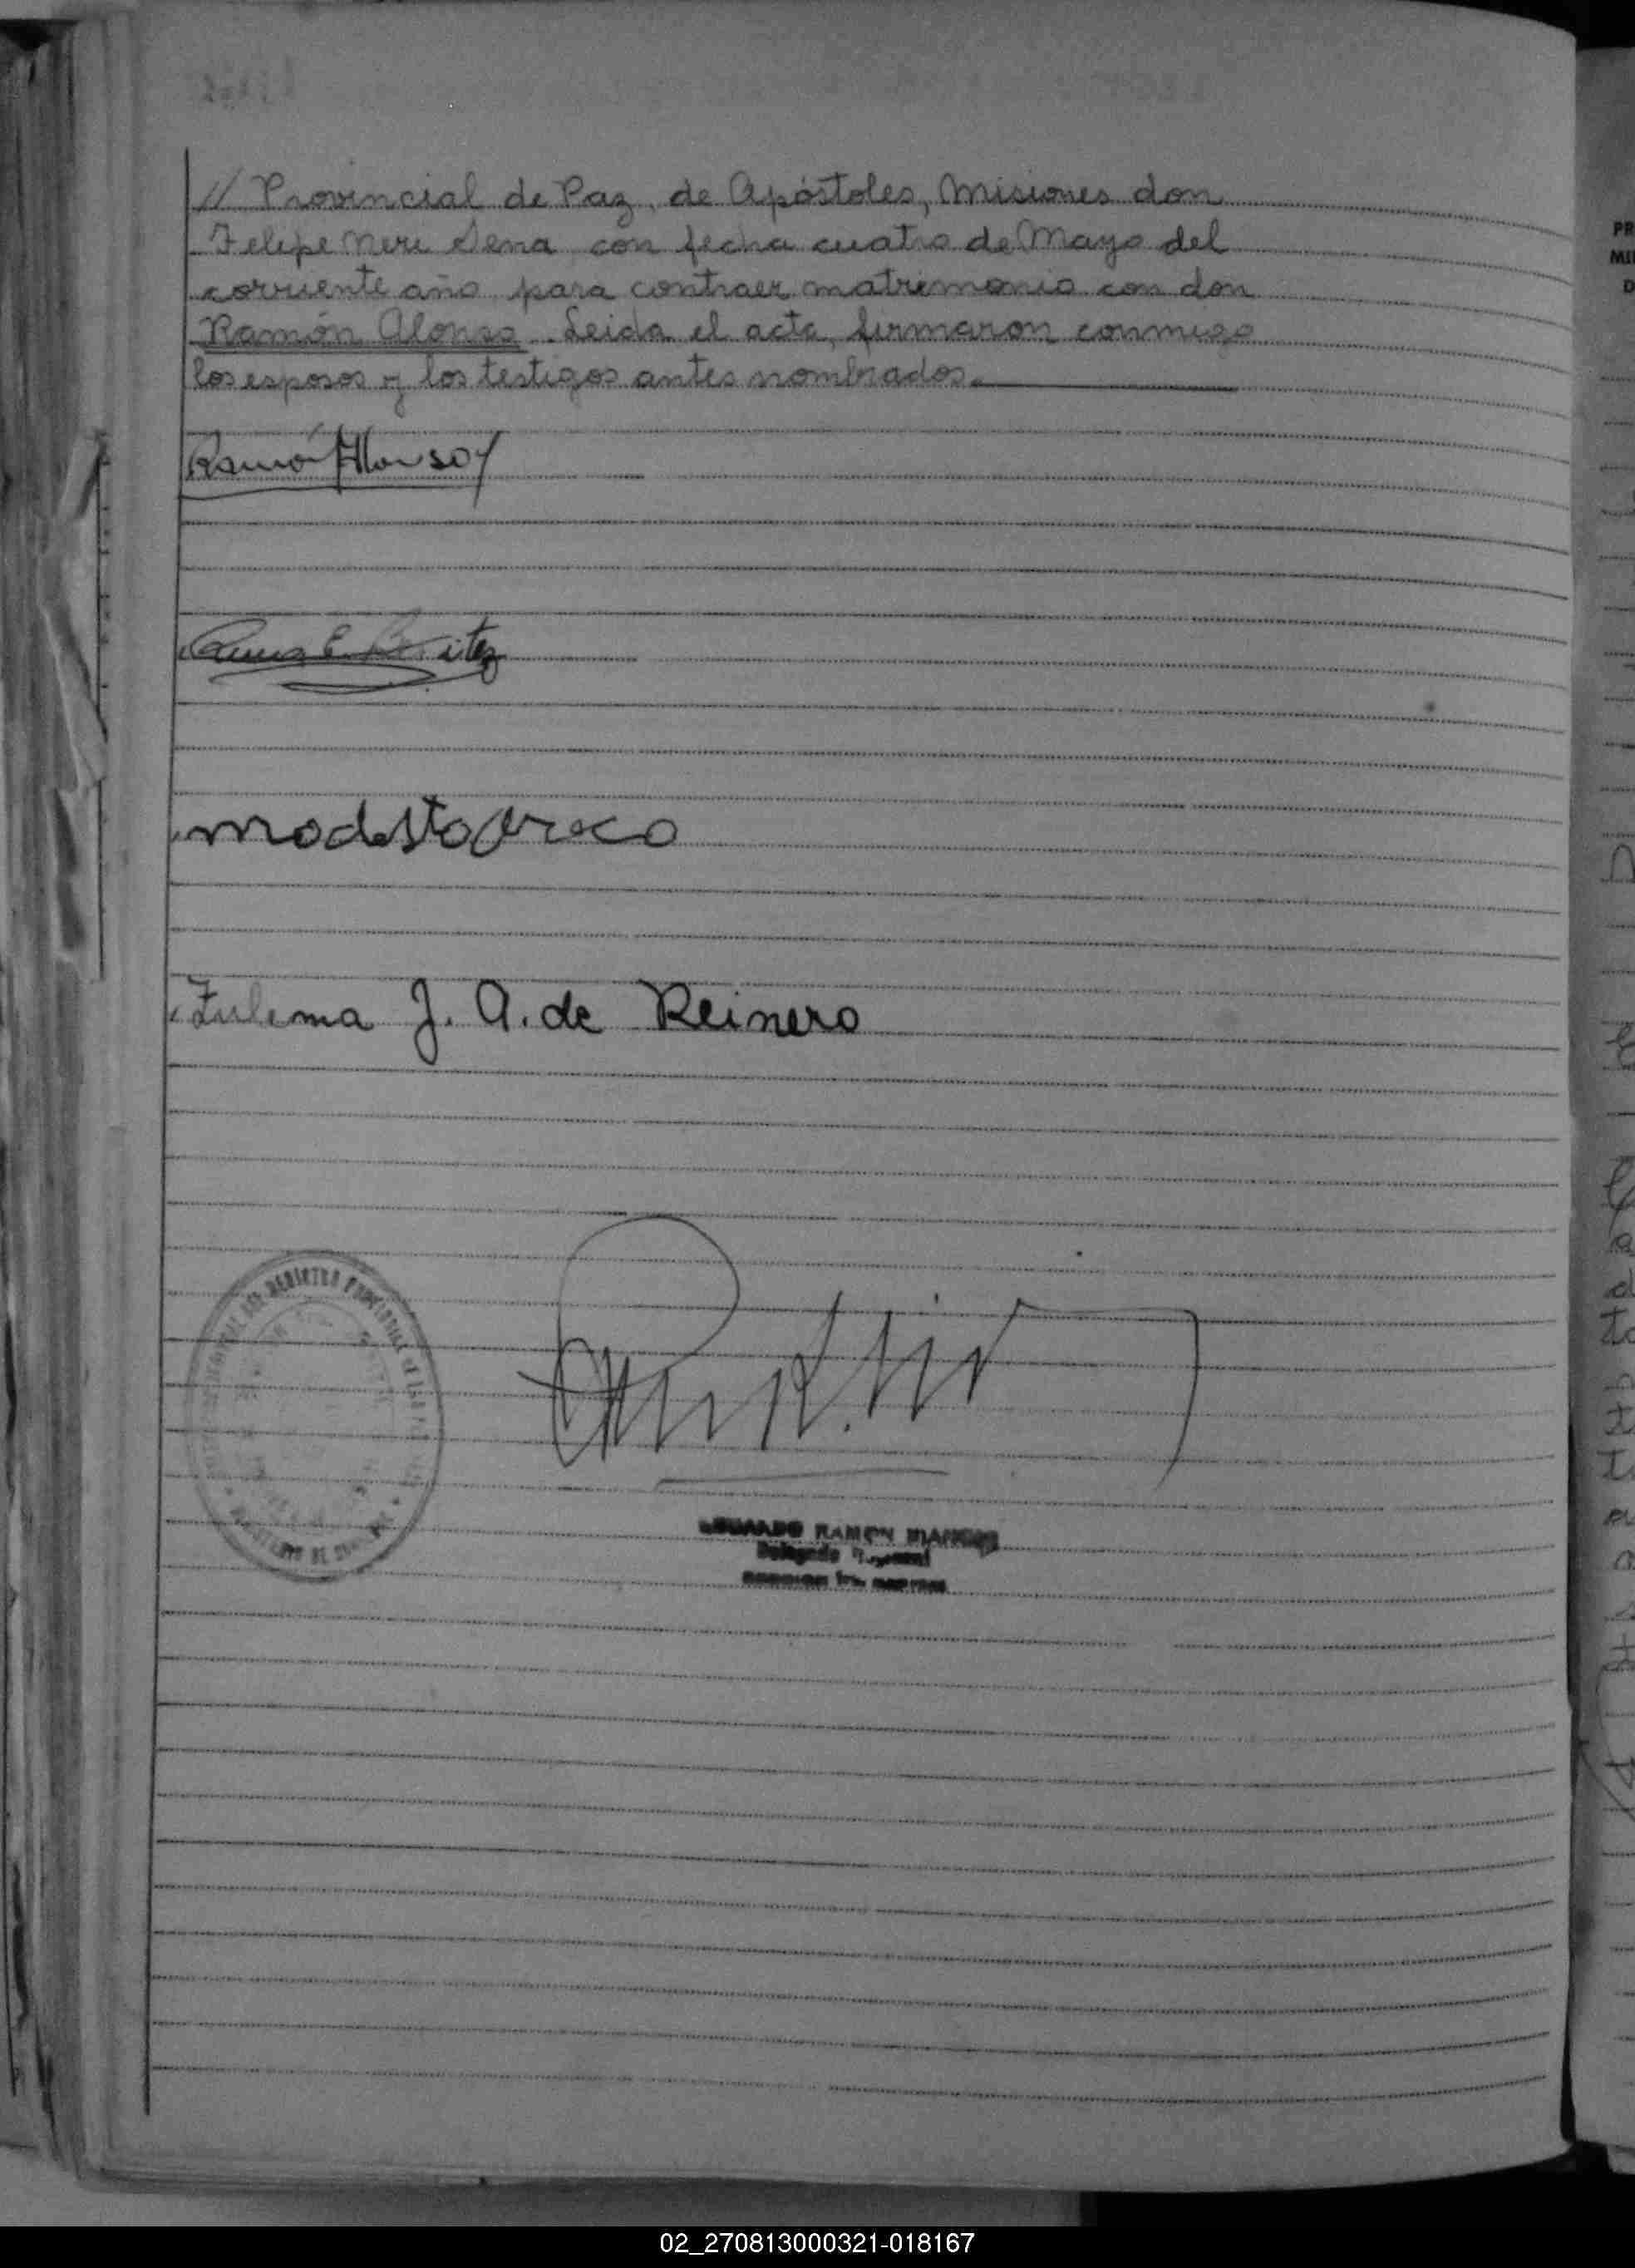 // Provincial de Paz, de Apóstoles, Misiones don
Felipe Neri Sena con fecha cuatro de Mayo del
corriente año para contraer matrimonio con don
Ramón Alonso. Leida el acta, firmaron conmigo
los esposos y los testigos antes nombrados.
Ramón Alonso
Benitez
modesto orozco
Zulema J. A. de Reinero
RAMON
02_270813000321-018167